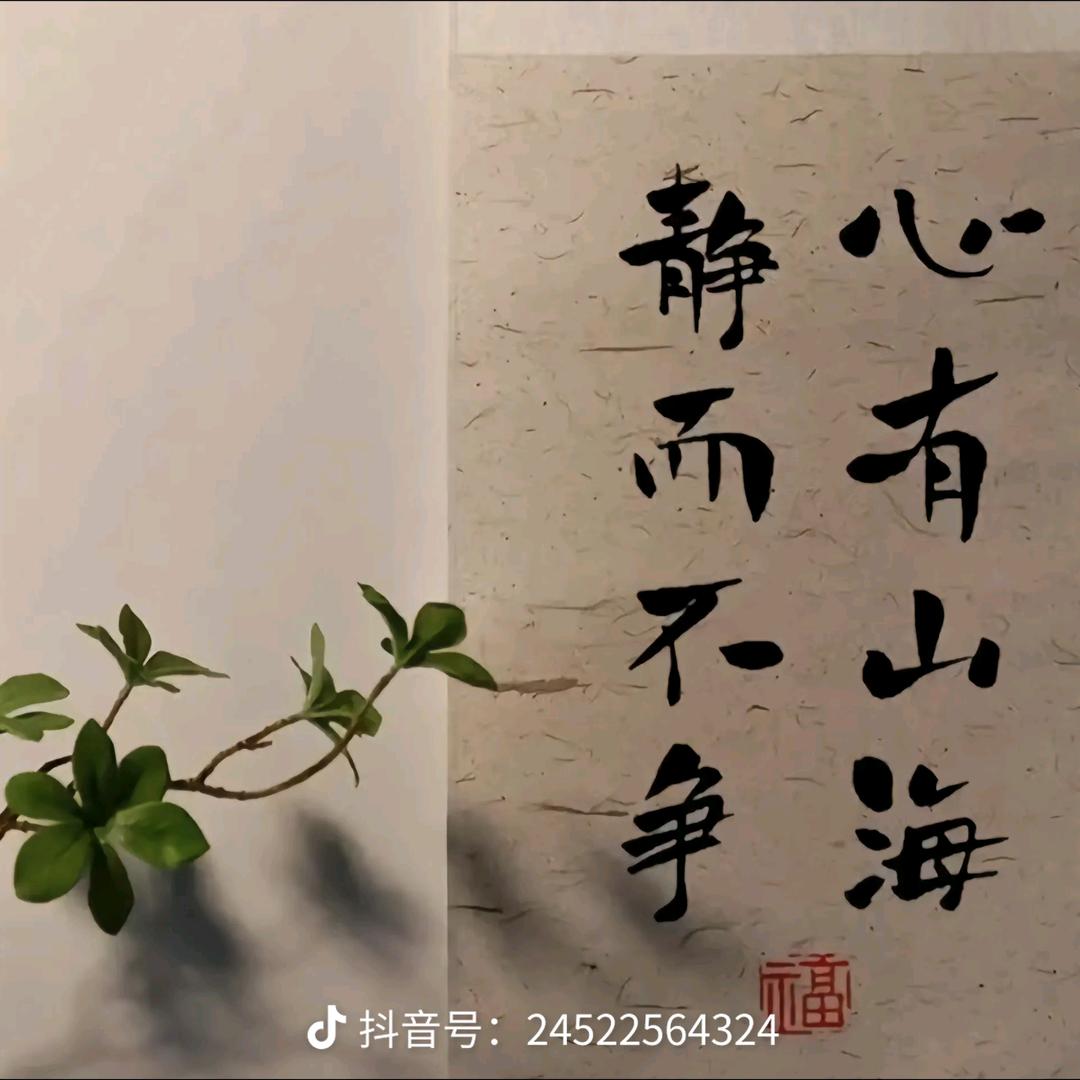 心有山海
静而不争
福
抖音号：24522564324